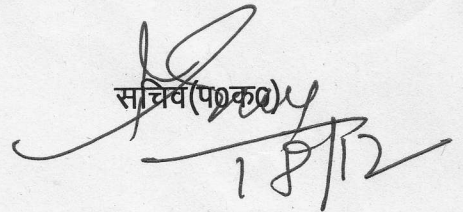 सचिव(प०क०)
18/12